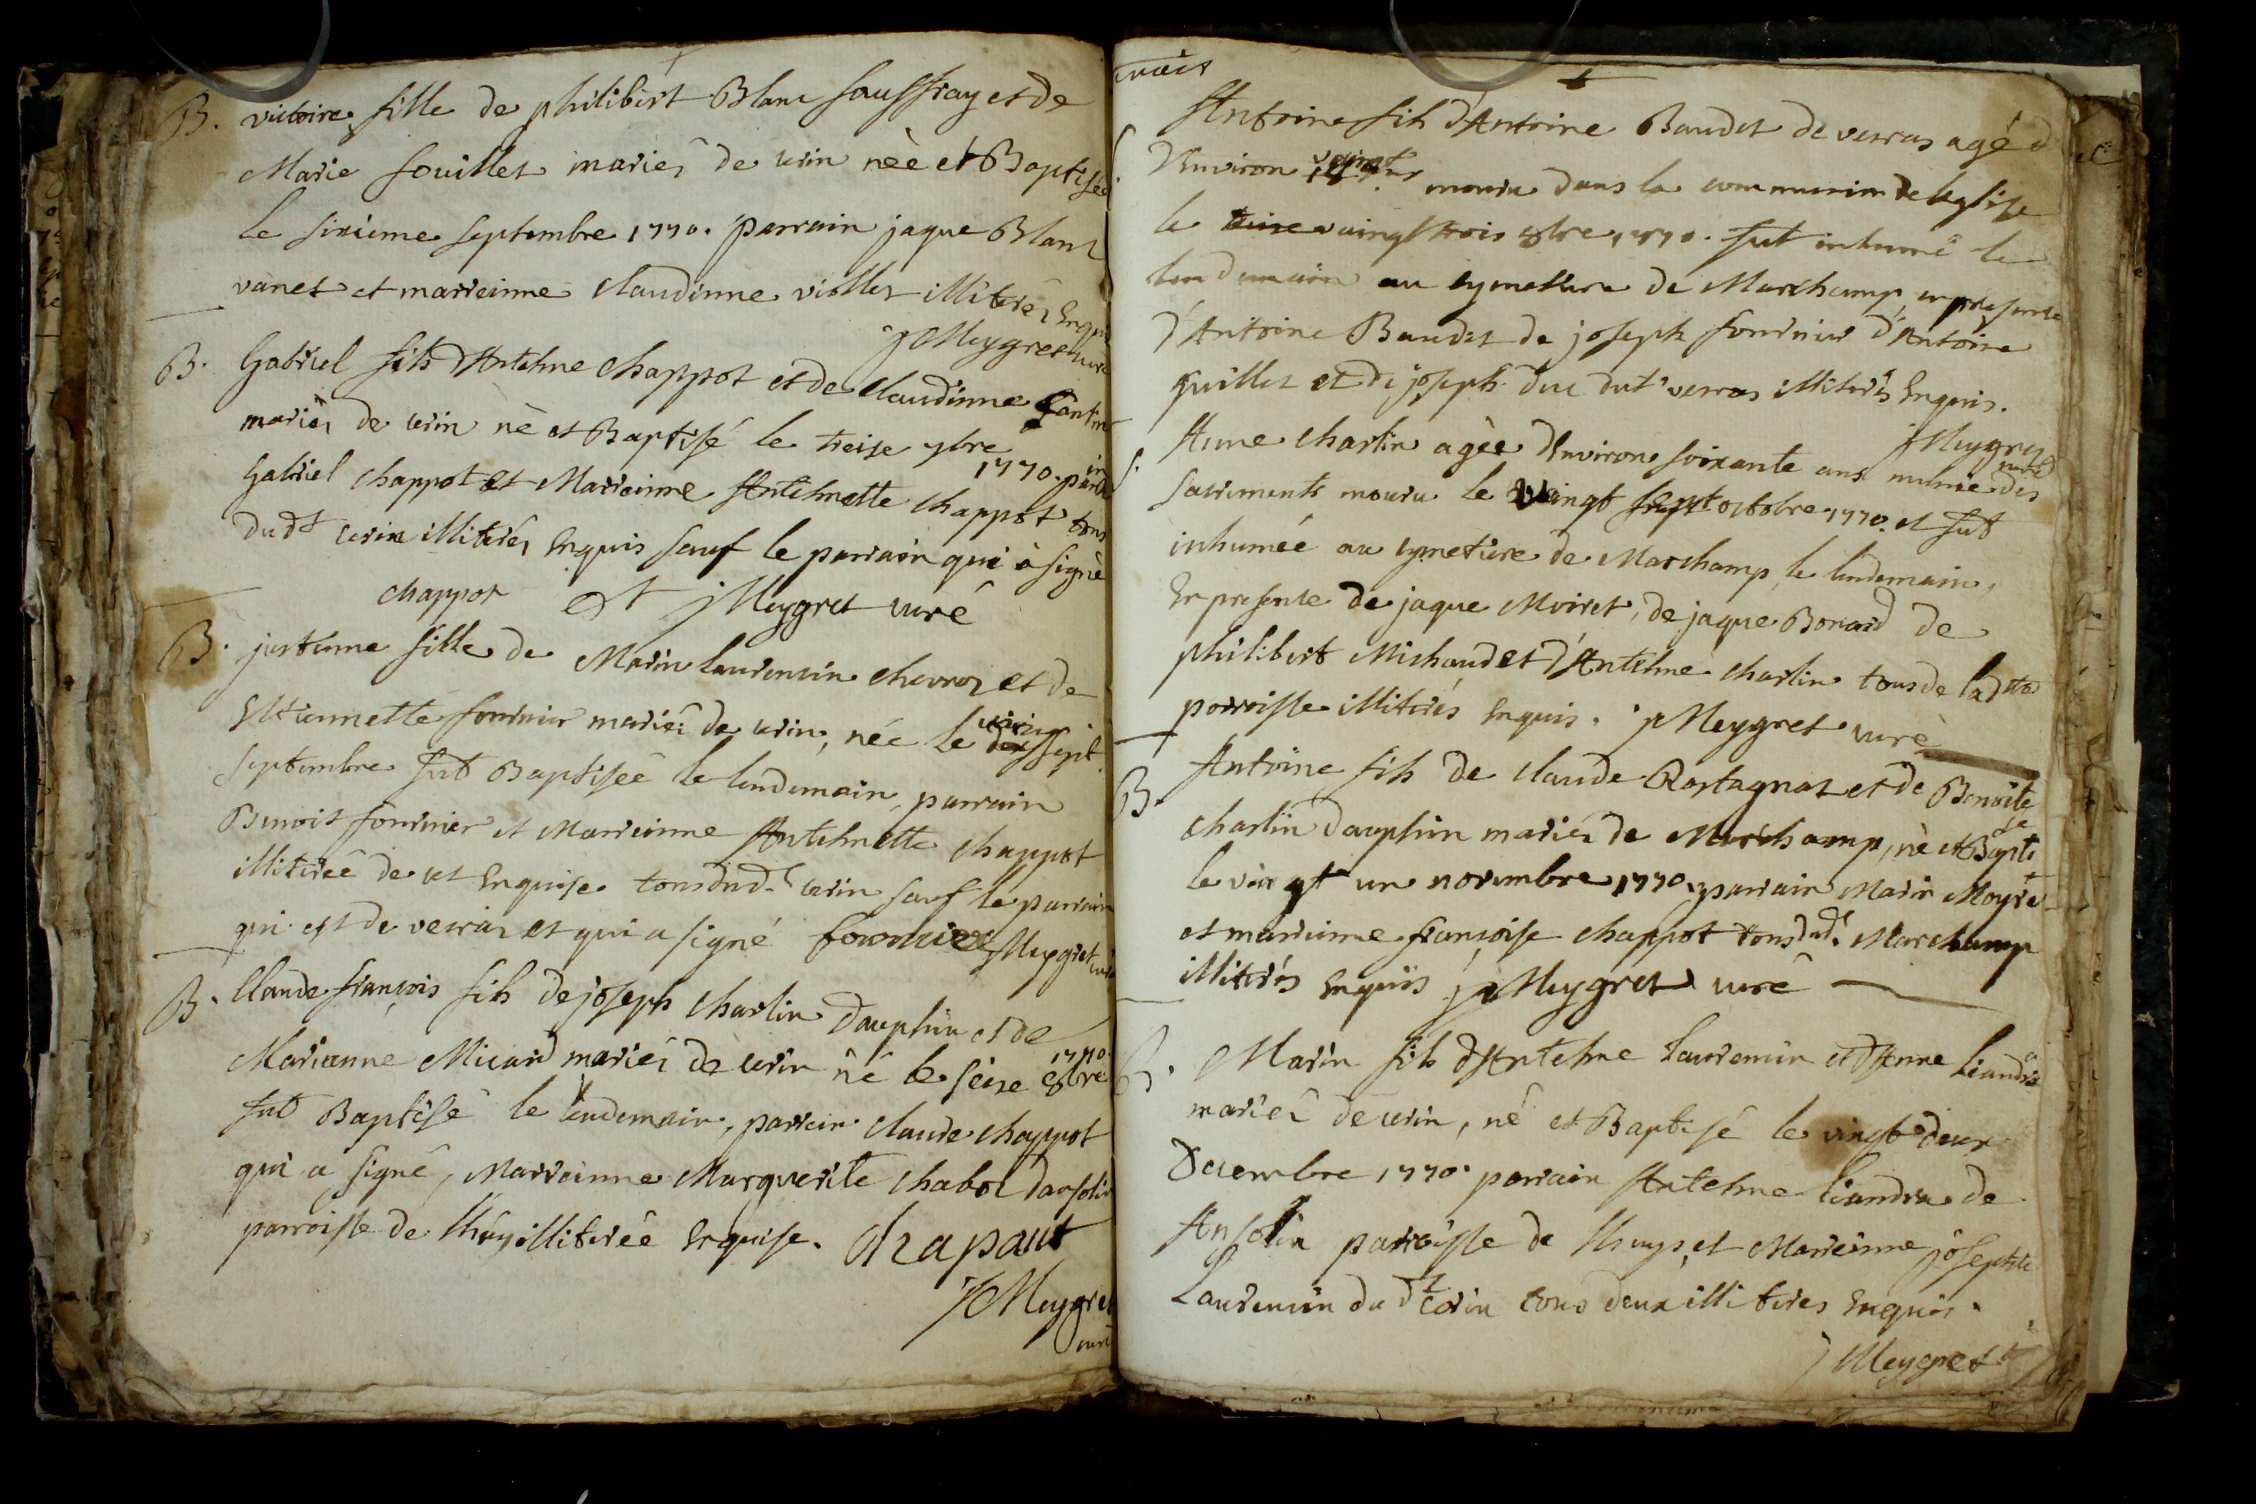 B. victoire fille de philibert Blanc sauffray et de
Marie fouillet mariés de cerin née et Baptisée
le sixieme septembre 1770. parrain jaque Blanc
vanet et marreinne claudinne viollet illiterés Enquis
j Meygret curé
B. Gabriel fils d'Antelme chappot et de claudinne
mariés de cerin né et Baptisé le treise 7bre 1770. parrain
Gabriel chappot et Marreinne Antelmette chappot tous
dudt cerin illiterés Enquis sauf le parrain qui a signé
chappot et j Meygret curé
B. justinne fille de Marin laurencin chevron et de
Estiennette fournier mariés de cerin, née le vingt sept
septembre fut Baptisée le lendemain, parrain
Benoit fournier et Marreinne Antelmette chappot
illiterée de ce Enquise tous dudt cerin sauf le parrain
qui est de verras et qui a signé fournier j Meygret curé
B. Claude françois fils de joseph charlin dauphin et de
Marianne Micard mariés de cerin né le seise 8bre 1770
fut Baptisé le lendemain, parrain claude chappot
qui a signé, Marreinne Marguerite chabot dansolin
parroisse de lhuys illiterée Enquise. chapaut
j Meygret
curé
Antoine fils d'Antoine Baudet de verras agé
d'Environ vaingt ans mouru dans la communion de leglise
le vaingt trois 8bre 1770. fut inhumé le
lendemain au cymettiere de Marchamp en presence
d'Antoine Baudet de joseph fournier d'Antoine
guillet et de joseph duc dudt verras illiterés Enquis.
j Meygret curé
S. Anne charlin agée d'Environ soixante ans munie des
sacrements mouru le vaingt sept octobre 1770. et fut
inhumée au cymetiere de Marchamp le lendemain,
En presence de jaque Moiret, de jaque Bonard de
philibert Michaud et d'Antelme charlin tous de ladite
parroisse illiterés Enquis. j Meygret curé
B. Antoine fils de claude Rostagnat et de Benoite
charlin dauphin mariés de Marchamp, né et Baptisé
le vingt un novembre 1770. parrain Marin Moyret
et marreinne françoise chappot tous dudt. Marchamp
illiterés Enquis j Meygret curé
B. Marin fils d'Antelme Laurencin et d'Anne Liandra
mariés de cerin, né et Baptisé le vingt deux
Decembre 1770. parrain Antelme liandra de
Ansolin parroisse de lhuys, et Marreinne josephte
Laurencin du dt cerin tous deux illiteres Enquis.
j Meygret